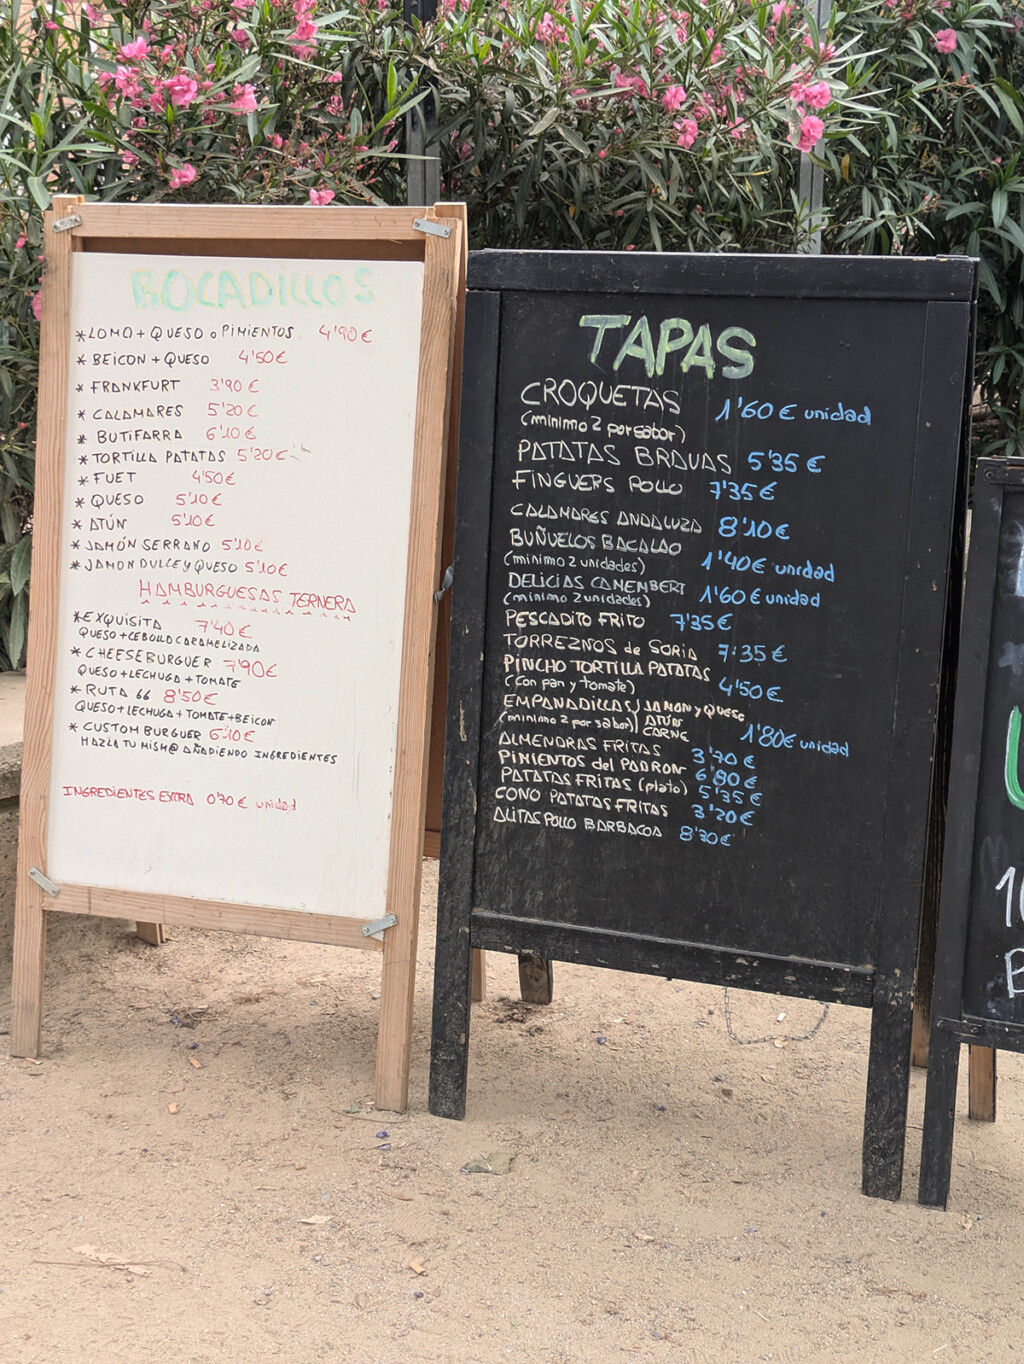 BOCADILLOS
* LOMO + QUESO o PIMIENTOS 4'90 €
* BEICON + QUESO 4'50 €
* FRANKFURT 3'90 €
* CALAMARES 5'20 €
* BUTIFARRA 6'10 €
* TORTILLA PATATAS 5'20 €
* FUET 4'50 €
* QUESO 5'10 €
* ATÚN 5'10 €
* JAMÓN SERRANO 5'10 €
* JAMON DULCE Y QUESO 5'10 €
HAMBURGUESAS TERNERA
* EXQUISITA 7'40 €
QUESO + CEBOLLA CARAMELIZADA
* CHEESEBURGUER 7'90 €
QUESO + LECHUGA + TOMATE
* RUTA 66 8'50 €
QUESO + LECHUGA + TOMATE + BEICON
* CUSTOM BURGUER 6'10 €
HAZLA TU MISM@ AÑADIENDO INGREDIENTES
INGREDIENTES EXTRA 0'70 € unidad
TAPAS
CROQUETAS 1'60 € unidad
(mínimo 2 por sabor)
PATATAS BRAVAS 5'35 €
FINGUERS POLLO 7'35 €
CALAMARES ANDALUZA 8'10 €
BUÑUELOS BACALAO
(mínimo 2 unidades) 1'40 € unidad
DELICIAS CAMEMBERT
(mínimo 2 unidades) 1'60 € unidad
PESCADITO FRITO 7'35 €
TORREZNOS de SORIA 7'35 €
PINCHO TORTILLA PATATAS
(con pan y tomate) 4'50 €
EMPANADILLAS JAMON y QUESO
(mínimo 2 por sabor) ATÚN
CARNE 1'80 € unidad
ALMENDRAS FRITAS 3'70 €
PIMIENTOS del PADRON 6'80 €
PATATAS FRITAS (plato) 5'35 €
CONO PATATAS FRITAS 3'20 €
ALITAS POLLO BARBACOA 8'30 €